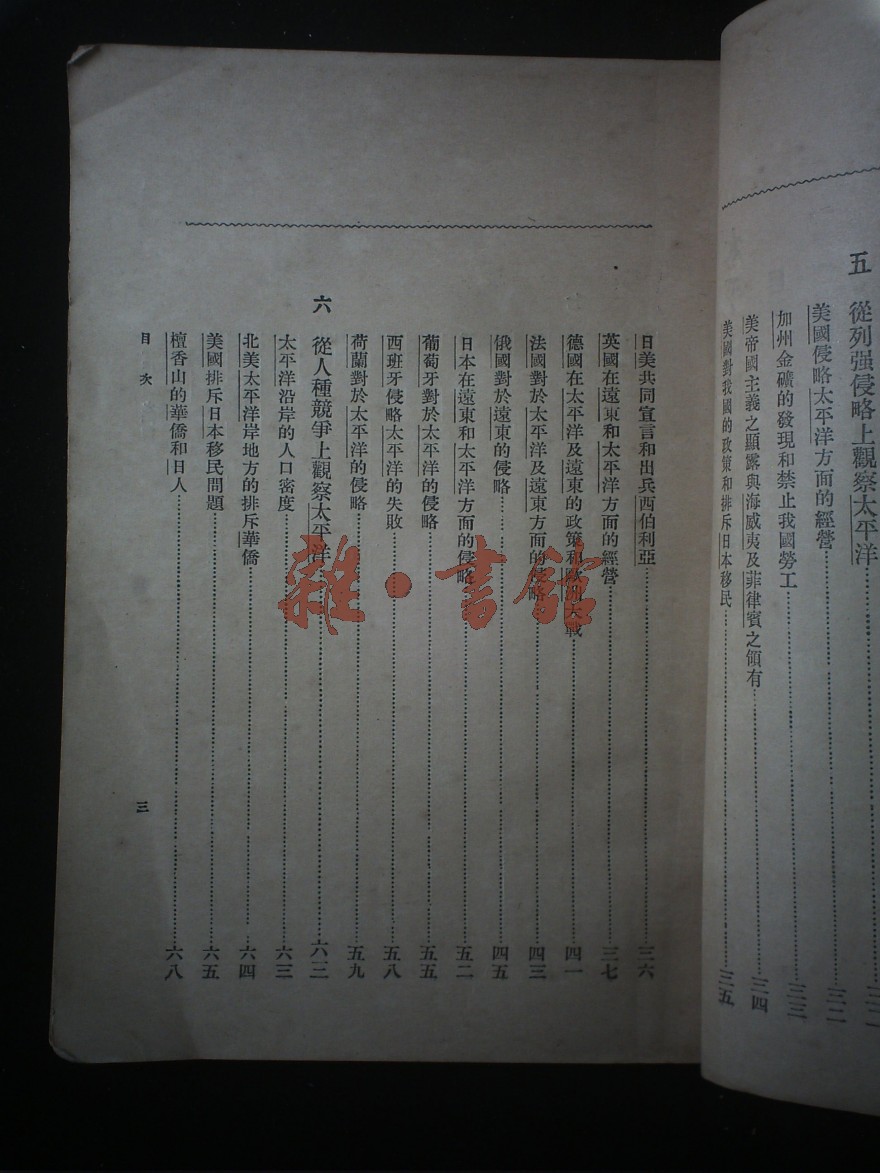 五 從列强侵略上觀察太平洋……三二
美國侵略太平洋方面的經營……三二
加州金礦的發現和禁止我國勞工……三三
美帝國主义之顯露與海威夷及菲律賓之領有……三四
美國對我國的政策和排斥日本移民……三五
日美共同宣言和出兵西伯利亞……三六
英國在遠東和太平洋方面的經營……三七
德國在太平洋及遠東的政策和歐洲大戰……四一
法國對於太平洋及遠東方面的侵略……四三
俄國對於遠東的侵略……四五
日本在遠東和太平洋方面的侵略……五二
葡萄牙對於太平洋的侵略……五五
西班牙侵略太平洋的失敗……五八
荷蘭對於太平洋的侵略……五九
六 從人種競爭上觀察太平洋……六三
太平洋沿岸的人口密度……六三
北美太平洋岸地方的排斥華僑……六四
美國排斥日本移民問題……六五
檀香山的華僑和日人……六八
目次
三
雜·書館